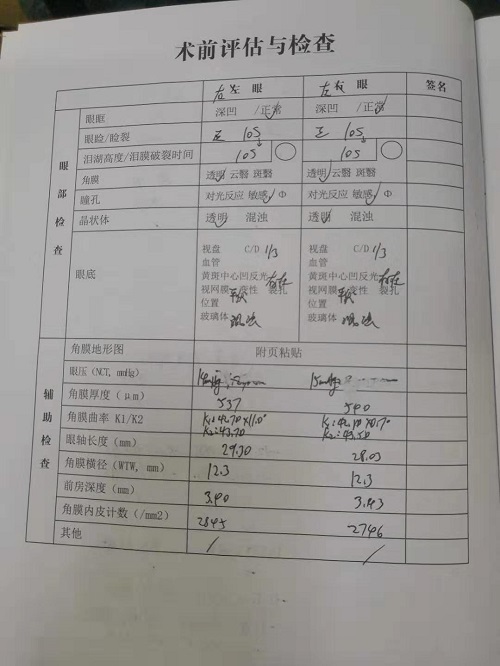 术前评估与检查
右左 眼 左右 眼 签名
眼部检查
眼眶 深凹 /正常 深凹 /正常
眼睑/睑裂 正 10S 正 10S
泪湖高度/泪膜破裂时间 10S 10S
角膜 透明 云翳 斑翳 透明 云翳 斑翳
瞳孔 对光反应 敏感 Φ 对光反应 敏感 Φ
晶状体 透明 混浊 透明 混浊
眼底
视盘 C/D 1/3 视盘 C/D 1/3
血管 血管
黄斑中心凹反光 存在 黄斑中心凹反光 存在
视网膜 平伏 变性 裂孔 视网膜 平伏 变性 裂孔
位置 位置
玻璃体 混浊 玻璃体 混浊
辅助检查
角膜地形图 附页粘贴
眼压(NCT, mmHg)
角膜厚度(μm) 537 540
角膜曲率 K1/K2 K1:42.70×11.0° K1:42.10×0.7°
K2:43.70 K2:43.50
眼轴长度(mm) 29.30 28.03
角膜横径(WTW, mm) 12.3 12.3
前房深度(mm) 3.40 3.43
角膜内皮计数(/mm2) 2845 2746
其他 / /